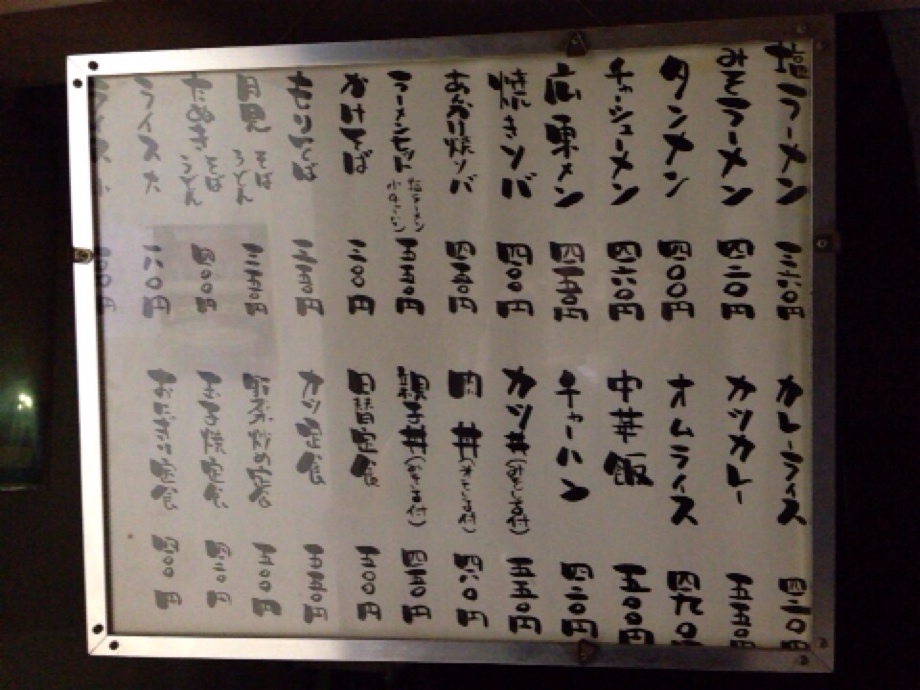 塩ラーメン 三六〇円
みそラーメン 四二〇円
タンメン 四〇〇円
チャーシューメン 四六〇円
広東メン 四五〇円
焼きソバ 四〇〇円
あんかけ焼ソバ 四五〇円
ラーメンセット 塩ラーメン 小チャーハン 五五〇円
かけそば 二〇〇円
もりそば 二五〇円
月見 そば うどん 三五〇円
たぬき そば うどん 四〇〇円
ライス大 二六〇円
ライス小 二〇〇円
カレーライス 四二〇円
カツカレー 五五〇円
オムライス 四九〇
中華飯 五〇〇円
チャーハン 四二〇円
カツ丼(みそしる付) 五五〇円
肉丼(みそしる付) 四六〇円
親子丼(みそしる付) 四五〇円
日替定食 五〇〇円
カツ定食 五五〇円
野菜炒め定食 五〇〇円
玉子焼定食 四二〇円
定食 四〇〇円